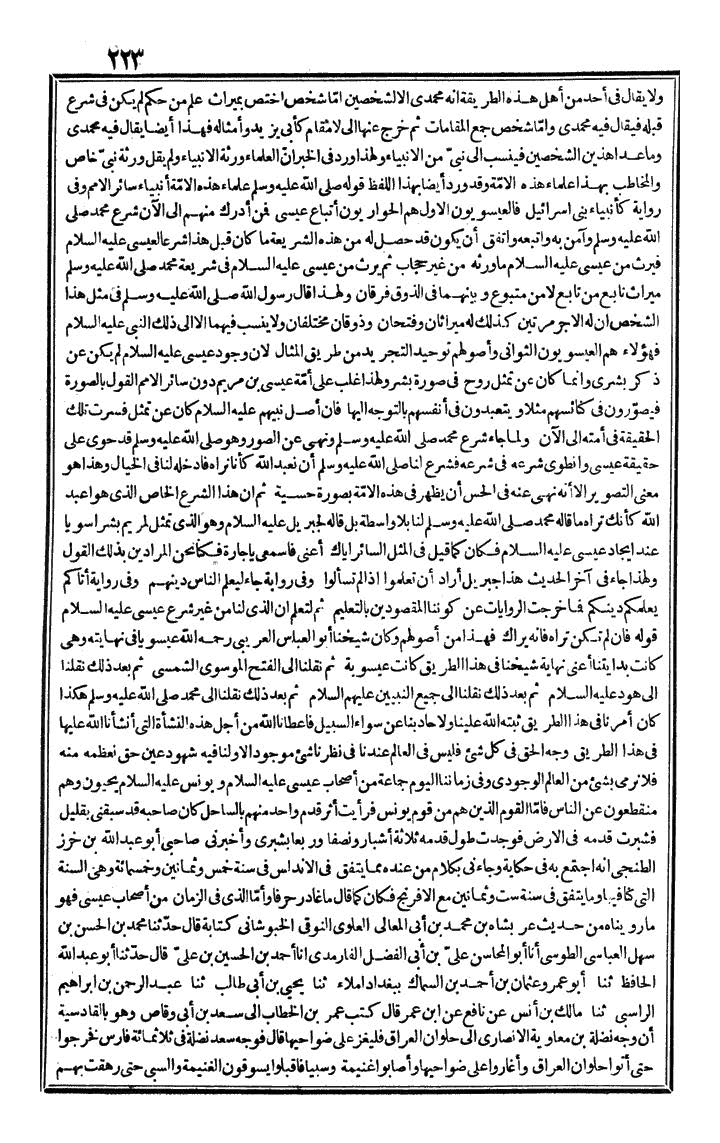 ٢٢٣
ولا يقال فى أحد من أهل هذه الطريقة انه محمدى الا لشخصين اما شخص اختص بميراث علم من حكم لم يكن فى شرع
قبله فيقال فيه محمدى واما شخص جمع المقامات ثم خرج عنها الى لامقام كأبى يزيد وأمثاله فهذا أيضا يقال فيه محمدى
وما عدا هذين الشخصين فينسب الى نبىّ من الانبياء ولهذا ورد فى الخبران العلماء ورثة الانبياء ولم يقل ورثة نبىّ خاص
والمخاطب بهذا علماء هذه الامّة وقد ورد أيضا بهذا اللفظ قوله صلى الله عليه وسلم علماء هذه الامّة أنبياء سائر الامم وفى
رواية كأنبياء بنى اسرائيل فالعيسويون الاول هم الحواريون أتباع عيسى فمن أدرك منهم الى الآن شرع محمد صلى
الله عليه وسلم وآمن به واتبعه واتفق أن يكون قد حصل له من هذه الشريعة ما كان قبل هذا شرعا لعيسى عليه السلام
فيرث من عيسى عليه السلام ما ورثه من غير حجاب ثم يرث من عيسى عليه السلام فى شريعة محمد صلى الله عليه وسلم
ميراث تابع من تابع لا من متبوع وبينهما فى الذوق فرقان ولهذا قال رسول الله صلى الله عليه وسلم فى مثل هذا
الشخص ان له الاجر مرتين كذلك له ميراثان وفتحان وذوقان مختلفان ولا ينسب فيهما الا الى ذلك النبى عليه السلام
فهؤلاء هم العيسويون الثوانى وأصولهم توحيد التجريد من طريق المثال لان وجود عيسى عليه السلام لم يكن عن
ذكر بشرى وانما كان عن تمثل روح فى صورة بشر ولهذا غلب على أمّة عيسى بن مريم دون سائر الامم القول بالصورة
فيصوّرون فى كنائسهم مثلا ويتعبدون فى أنفسهم بالتوجه اليها فان أصل نبيهم عليه السلام كان عن تمثل فسرت تلك
الحقيقة فى أمته الى الآن ولما جاء شرع محمد صلى الله عليه وسلم ونهى عن الصور وهو صلى الله عليه وسلم قد حوى على
حقيقة عيسى وانطوى شرعه فى شرعه فشرع لنا صلى الله عليه وسلم أن نعبد الله كأنا نراه فادخله لنا فى الخيال وهذا هو
معنى التصوير الا أنه نهى عنه فى الحس أن يظهر فى هذه الامّة بصورة حسية ثم ان هذا الشرع الخاص الذى هو اعبد
الله كأنك تراه ما قاله محمد صلى الله عليه وسلم لنا بلا واسطة بل قاله لجبريل عليه السلام وهو الذى تمثل لمريم بشرا سويا
عند ايجاد عيسى عليه السلام فكان كما قيل فى المثل السائر اياك أعنى فاسمعى ياجارة فكنا نحن المرادين بذلك القول
ولهذا جاء فى آخر الحديث هذا جبريل أراد أن تعلموا اذا لم تسألوا وفى رواية جاء ليعلم الناس دينهم وفى رواية أتاكم
يعلمكم دينكم فما خرجت الروايات عن كوننا المقصودين بالتعليم ثم لتعلم ان الذى لنا من غير شرع عيسى عليه السلام
قوله فان لم تكن تراه فانه يراك فهذا من أصولهم وكان شيخنا أبو العباس العريبى رحمه الله عيسويا فى نهايته وهى
كانت بدايتنا أعنى نهاية شيخنا فى هذا الطريق كانت عيسوية ثم نقلنا الى الفتح الموسوى الشمسى ثم بعد ذلك نقلنا
الى هود عليه السلام ثم بعد ذلك نقلنا الى جميع النبيين عليهم السلام ثم بعد ذلك نقلنا الى محمد صلى الله عليه وسلم هكذا
كان أمرنا فى هذا الطريق ثبته الله علينا ولا حاد بنا عن سواء السبيل فاعطانا الله من أجل هذه النشأة التى أنشأنا الله عليها
فى هذا الطريق وجه الحق فى كل شئ فليس فى العالم عندنا فى نظرنا شئ موجود الا ولنا فيه شهود عين حق نعظمه منه
فلا نرمى بشئ من العالم الوجودى وفى زماننا اليوم جماعة من أصحاب عيسى عليه السلام ويونس عليه السلام يحيون وهم
منقطعون عن الناس فاما القوم الذين هم من قوم يونس فرأيت أثر قدم واحد منهم بالساحل كان صاحبه قد سبقنى بقليل
فشبرت قدمه فى الارض فوجدت طول قدمه ثلاثة أشبار ونصفا وربعا بشبرى وأخبرنى صاحبى أبو عبد الله بن خرز
الطنجى انه اجتمع به فى حكاية وجاءنى بكلام من عنده مما يتفق فى الاندلس فى سنة خمس وثمانين وخمسمائة وهى السنة
التى كنا فيها وما يتفق فى سنة ست وثمانين مع الافرنج فكان كما قال ما غادر حرفا وأما الذى فى الزمان من أصحاب عيسى فهو
ما رويناه من حديث عربشاه بن محمد بن أبى المعالى العلوى النوقى الخبوشانى كتابة قال حدّثنا محمد بن الحسن بن
سهل العباسى الطوسى أنا أبو المحاسن علىّ بن أبى الفضل الفارمدى انا أحمد بن الحسين بن علىّ قال حدّثنا أبو عبد الله
الحافظ ثنا أبو عمرو عثمان بن أحمد بن السماك ببغداد املاء ثنا يحيى بن أبى طالب ثنا عبد الرحمن بن ابراهيم
الراسبى ثنا مالك بن أنس عن نافع عن ابن عمر قال كتب عمر بن الخطاب الى سعد بن أبى وقاص وهو بالقادسية
أن وجه نضلة بن معاوية الانصارى الى حلوان العراق فليغز على ضواحيها قال فوجه سعد نضلة فى ثلاثمائة فارس فخرجوا
حتى أتوا حلوان العراق وأغاروا على ضواحيها وأصابوا غنيمة وسبيا فاقبلوا يسوقون الغنيمة والسبى حتى رهقت بهم